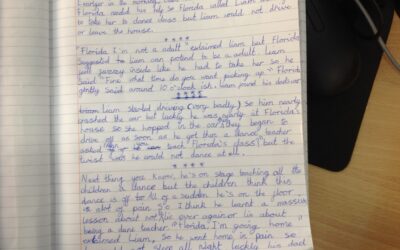 in the morning
Florida needed his help so Florida called Liam
to take her to dance class but Liam could not drive
or leave the house.
****
"Florida I'm not a adult" explained liam but Florida
Suggested to liam can pretend to be a adult. Liam
was inside like he had to take her so he
Said "Fine what time do you want picking up". Florida
gently Said around 10 o'clock ish. liam found his
****
Liam started driving (very badly) so him nearly
crashed the car but luckly he was at Florida's
house so she hopped in the car they began to
drive off as soon as he got there a dance teacher
asked to Florida's class but the
twist was he would not dance at all.
****
Next thing you know, he's on stage teaching all the
children a dance but the children think this
dance is off to. All of a sudden he's on the floor
in alot of pain. So I think he learnt a massive
lesson about not lie ever again or lie about
being a dance teacher. "Florida I'm going home"
explained Liam, So he went home in pain so
all night luckly his dad